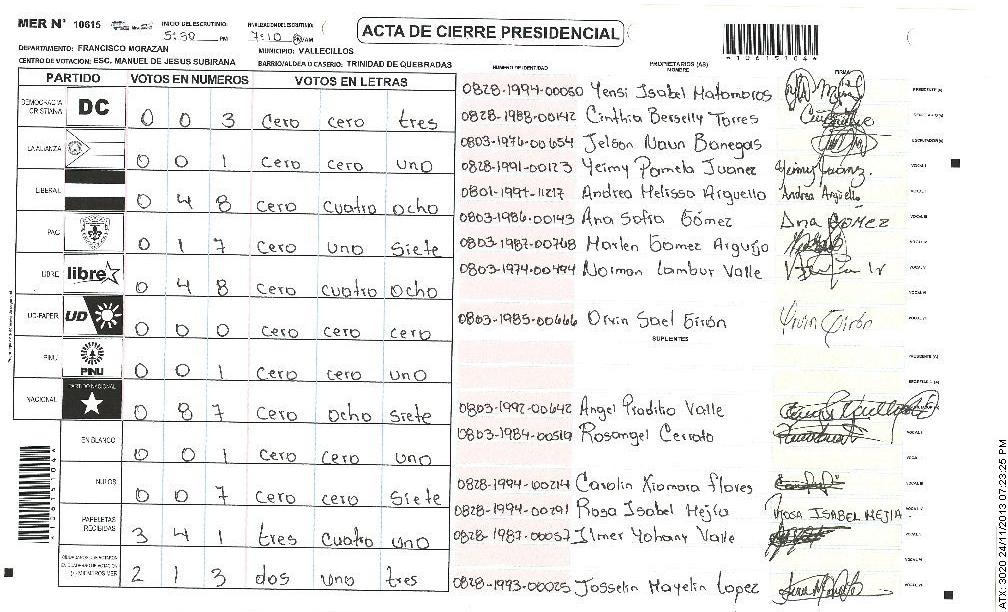 MER N° 10615
INICIO DEL ESCRUTINIO: 5:30 PM
FINALIZACION DEL ESCRUTINIO: 7:10 AM
ACTA DE CIERRE PRESIDENCIAL
*10615104*
DEPARTAMENTO: FRANCISCO MORAZAN
MUNICIPIO: VALLECILLOS
CENTRO DE VOTACION: ESC. MANUEL DE JESUS SUBIRANA
BARRIO/ALDEA O CASERIO: TRINIDAD DE QUEBRADAS
PARTIDO VOTOS EN NUMEROS VOTOS EN LETRAS
DEMOCRACIA CRISTIANA DC 0 0 3 cero cero tres
LA ALIANZA 0 0 1 cero cero uno
LIBERAL 0 4 8 cero cuatro ocho
PAC 0 1 7 cero uno siete
LIBRE libre 0 4 8 cero cuatro ocho
UD-FAPER UD 0 0 0 cero cero cero
PINU PINU 0 0 1 cero cero uno
NACIONAL PARTIDO NACIONAL 0 8 7 cero ocho siete
EN BLANCO 0 0 1 cero cero uno
NULOS 0 0 7 cero cero siete
PAPELETAS RECIBIDAS 3 4 1 tres cuatro uno
2 1 3 dos uno tres
NUMERO DE IDENTIDAD PROPIETARIOS (AS) NOMBRE FIRMA
0828-1994-00050 Yensi Isabel Matamoros
0828-1988-00142 Cinthia Berselly Torres
0803-1976-00654 Jelson Naun Banegas
0828-1991-00123 Yeimy Pamela Juanez
0801-1994-11217 Andrea Melissa Arguello Andrea Argüello
0803-1986-00143 Ana Sofia Gómez Ana GOMEZ
0803-1987-00768 Marlen Gomez Argujo
0803-1974-00494 Norman Lambur Valle
0803-1985-00666 Orvin Sael Girón
SUPLENTES
0803-1992-00642 Angel Pradilio Valle
0803-1984-00519 Rosangel Cerrato
0828-1994-00214 Carolin Xiomara flores
0828-1994-00291 Rosa Isabel Mejía ROSA ISABEL MEJIA
0828-1987-00057 Ilmer Yohany Valle
0828-1993-00025 Josselin Mayelin Lopez
*10615104*
ATX-3020 24/11/2013 07:23:25 PM